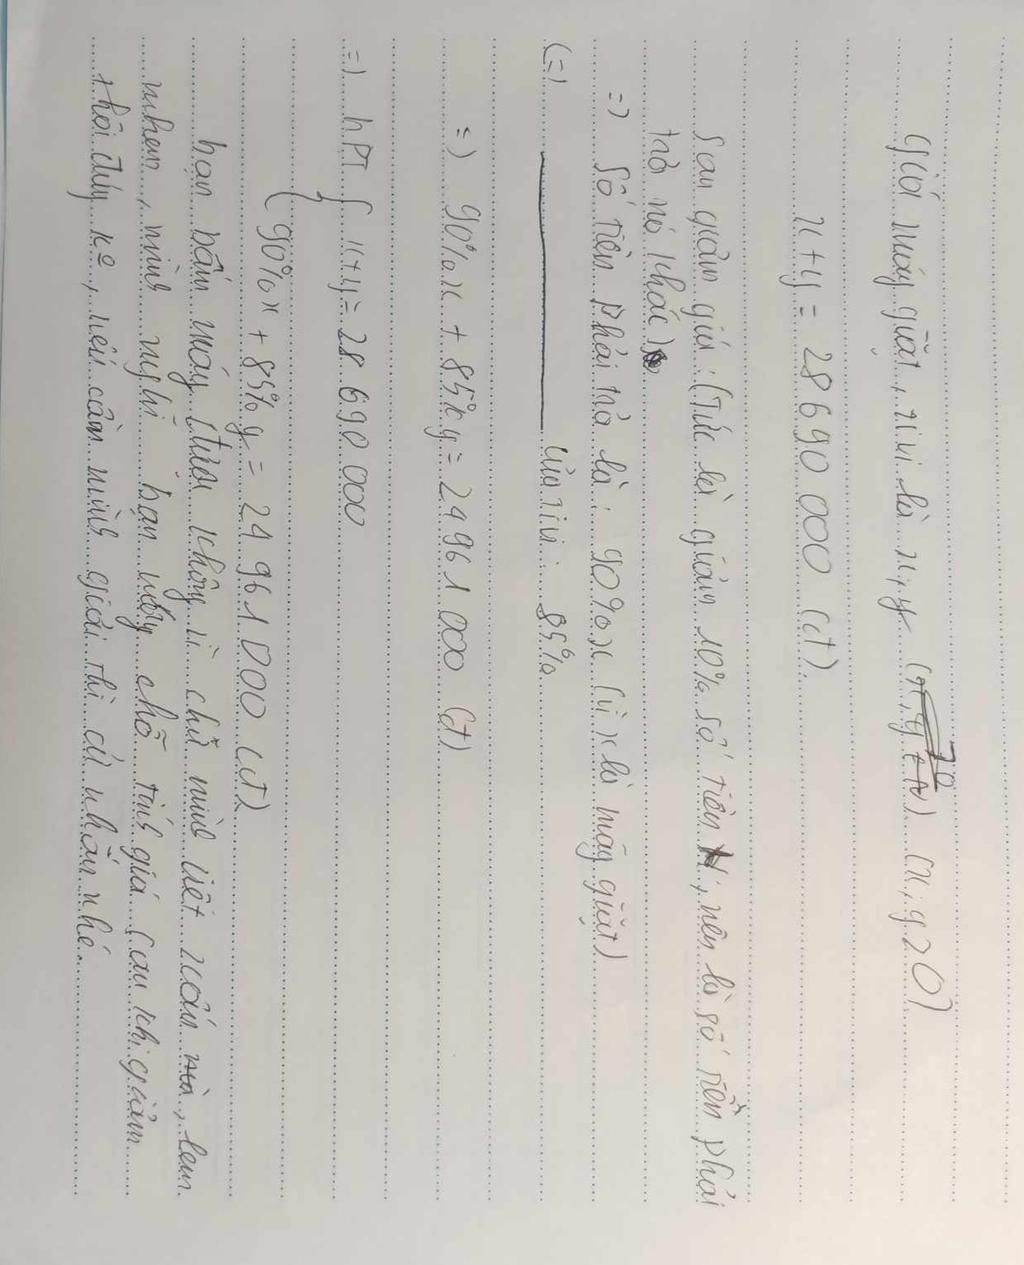 Giá máy giặt, tivi là x, y (x, y ∈ N) (x, y > 0)
x + y = 28 690 000 (đ)
Sau giảm giá: (Tức là giảm 10% số tiền, nên là số tiền phải
trả nó khác)
=> Số tiền phải trả là: 90% x (vì x là máy giặt)
(=) của tivi 85%
=) 90% x + 85% y = 24 961 000 (đ)
=) hPT { x + y = 28 690 000
{ 90% x + 85% y = 24 961 000 (đ)
bạn bấm máy (đừng không vì chữ mình viết xấu mà, lem
nhem, mình nghĩ bạn vướng chỗ tính giá sau khi giảm
thôi đúng ko, nếu cần mình giải thì cứ nhắn nhé.